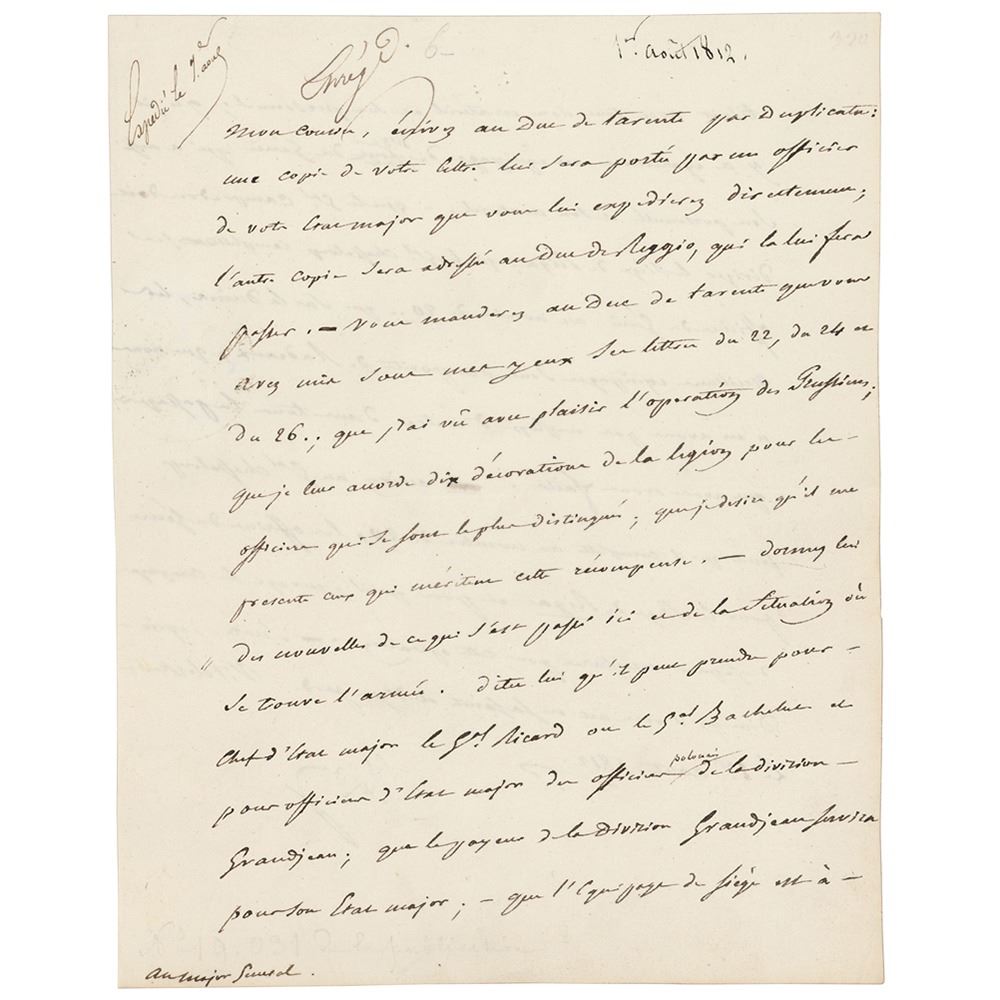 Expédié le 1er août
Enrég. D. 6
1er août 1812.
mon cousin, écrivez au Duc de tarente par Duplicata:
une copie de votre lettre lui sera portée par un officier
de votre Etat major que vous lui expedierez directement;
l'autre copie sera adressée au Duc de Reggio, qui la lui fera
passer. — vous manderez au Duc de tarente que vous
avez mis sous mes yeux ses lettres du 22, du 24 et
du 26.; que j'ai vû avec plaisir l'operation des Prussiens;
que je leur accorde dix décorations de la légion pour les —
officiers qui se sont le plus distingués; que je desire qu'il me
presente ceux qui méritent cette récompense. — donnez lui
des nouvelles de ce qui s'est passé ici et de la situation où
se trouve l'armée. dites lui qu'il peut prendre pour —
Chef d'Etat major le Gal Ricard ou le Gal Bachelu et
pour officiers d'Etat major des officiers polonais de la division —
Grandjean; que le payeur de la division Grandjean servira
pour son Etat major; — que l'Equipage de siége est à —
au major General.